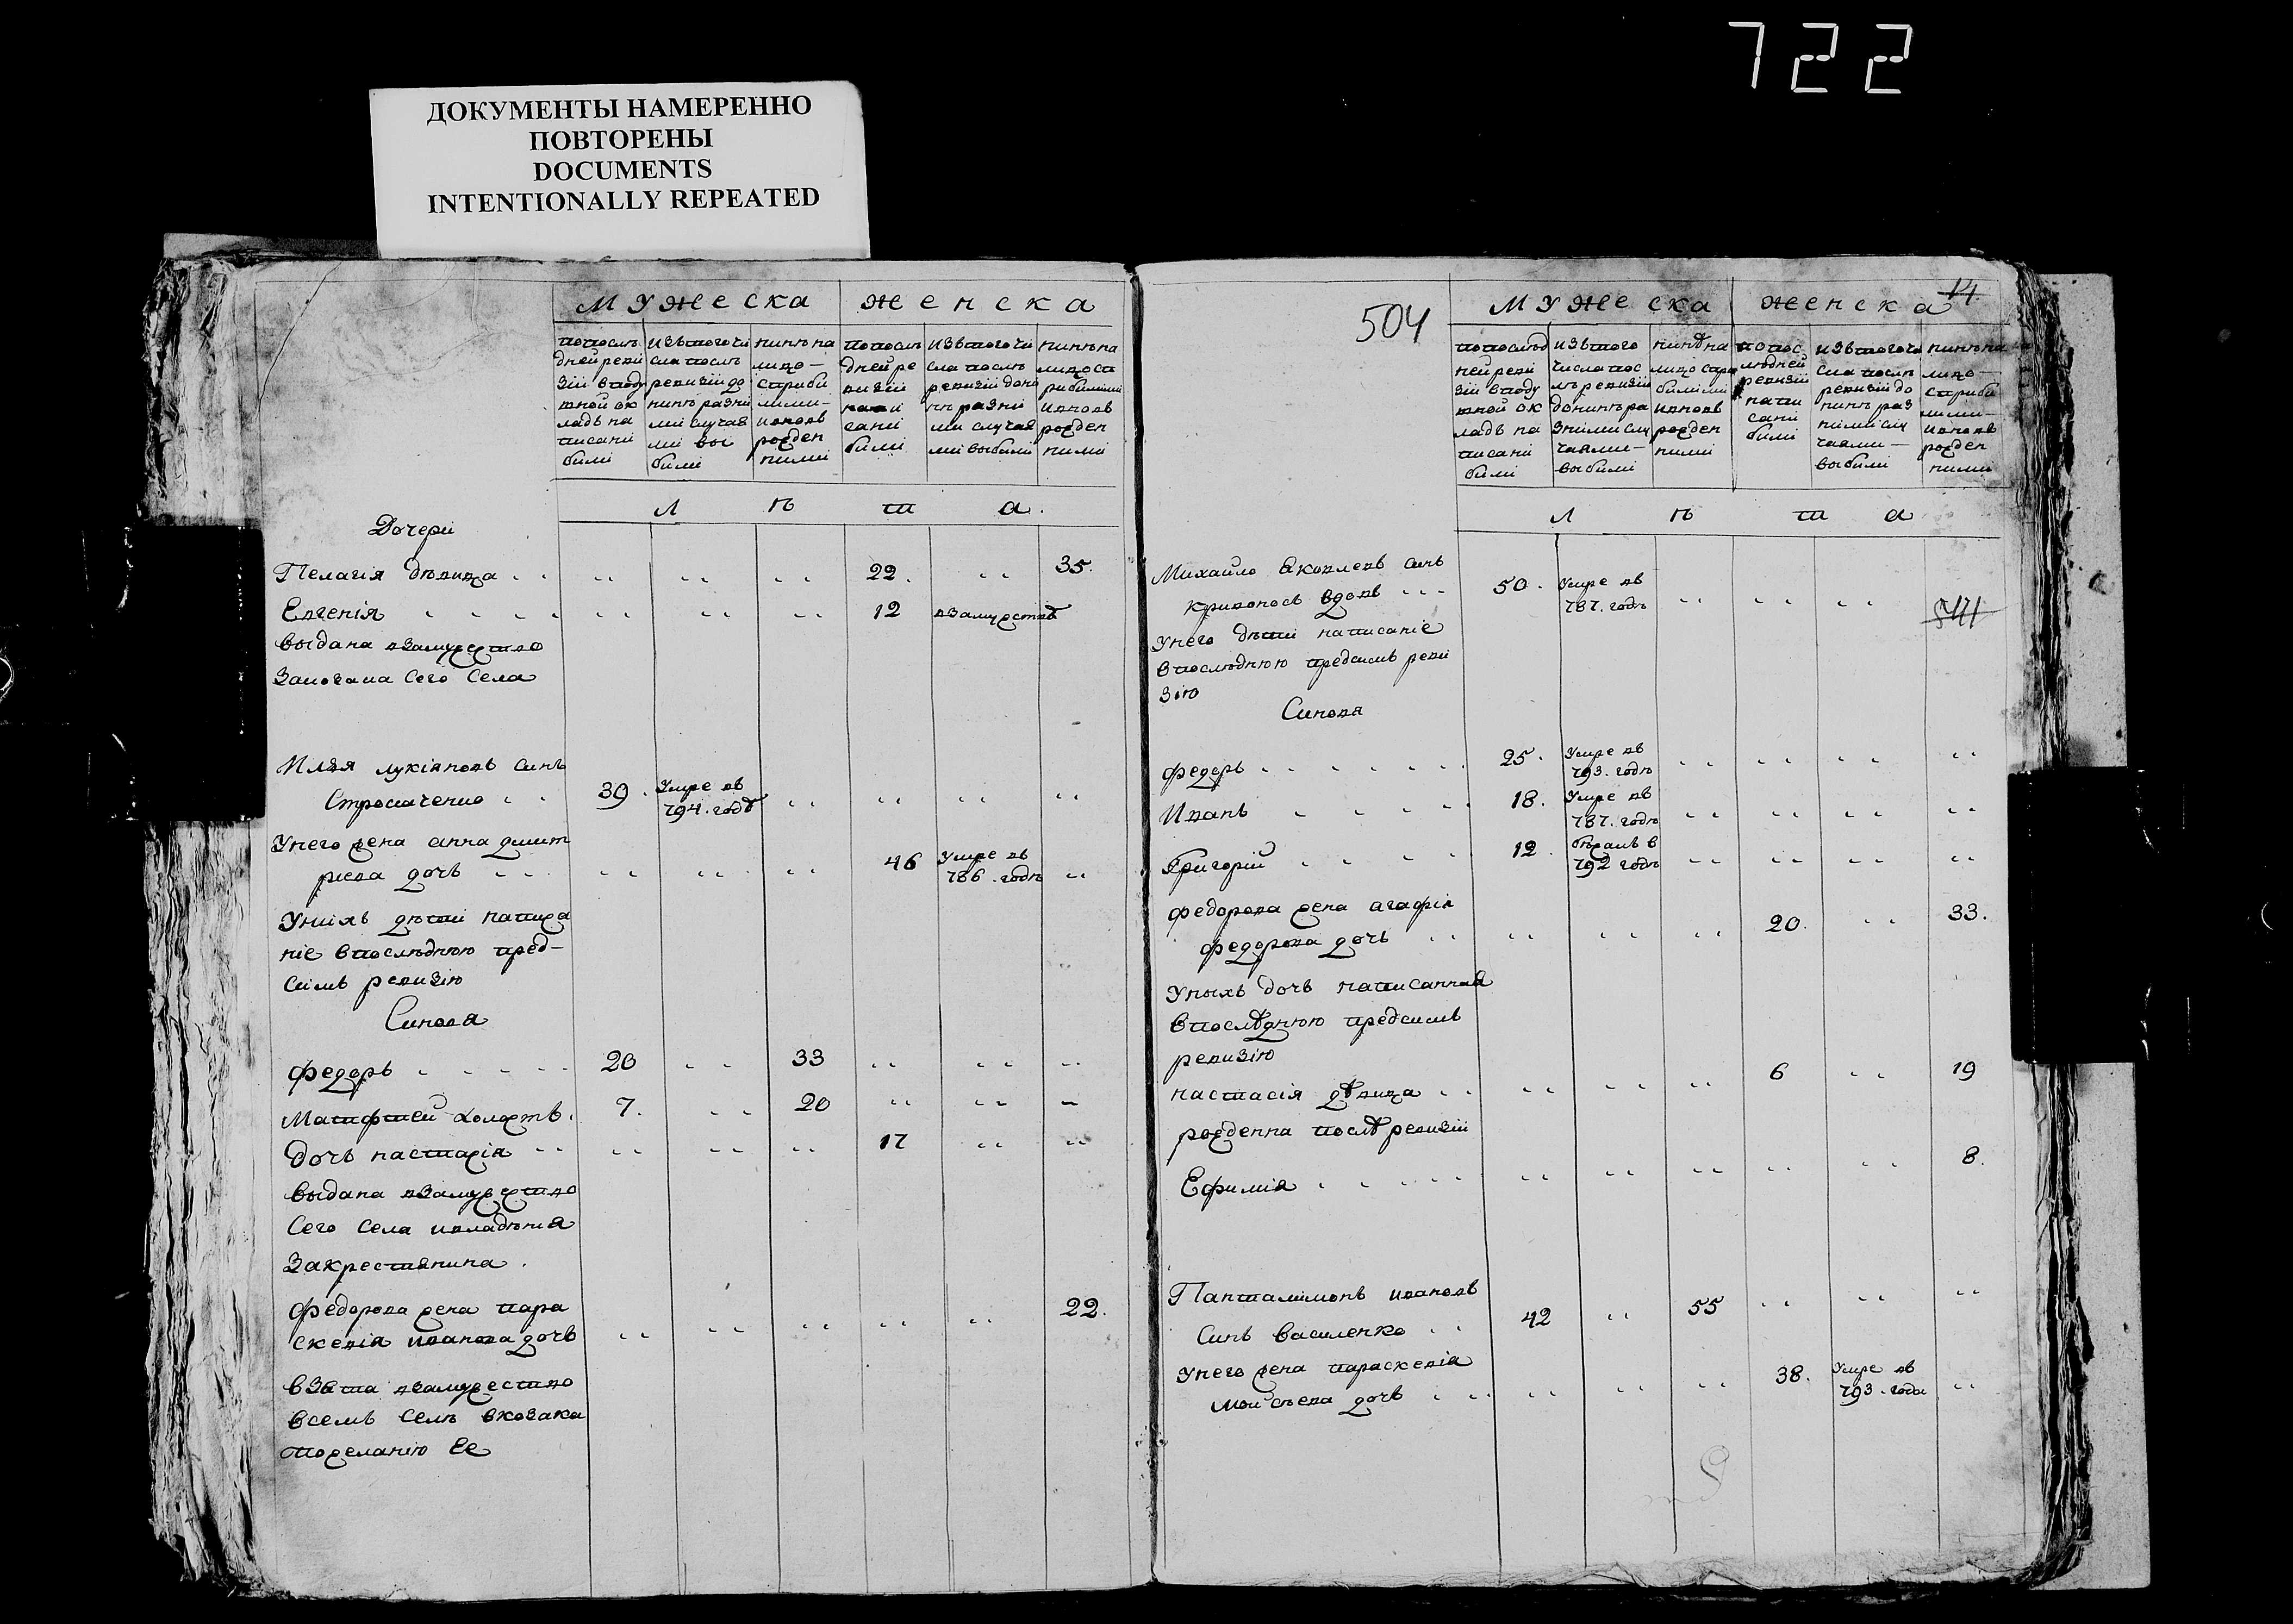 722
ДОКУМЕНТЫ НАМЕРЕННО
ПОВТОРЕНЫ
DOCUMENTS
INTENTIONALLY REPEATED
Мужеска женска
попослѣ дней реви зіи вподу шной ок ладъ на писани били
изътого чи сла послѣ ревизіи до нинѣ разни ми случая ми вы били
нинѣ на лицо – сприби лими – ивновь рожден ними
попослѣ дней ре визіи напи сани били
изътого чи сла послѣ ревизіи дони нѣ разни ми случая ми вибили
нинѣ на лицо сп рибилими ивновь рожден ними
лѣта.
Дочери
Пелагія дѣвица 22. 35.
Евгенія 12 взамужство
выдана взамужество
Сего Села
Илья лукіяновъ Синъ
39. Умре въ 794. годѣ
Унего жена анна дмит
риева дочь 46 Умре въ 786. годѣ
Унихъ дѣти написа
ніе впослѣднюю пред–
симъ ревизію
Синовя
федоръ 20 33
Матфтей холостъ. 7. 20
дочь настасія 17
выдана взамужество
Сего Села ивладѣнія
Закрестянина.
федорова жена пара
скевія иванова дочь 22.
взята взамужество
всемъ Селѣ вкозака
пожеланію Ее
504
14
Мужеска женска
попослѣд ней реви зіи вподу шной ок ладъ на писани били
изътого числа пос лѣ ревизіи донинѣ ра зними слу чаями – выбили
нинѣ на лицо спри билими ивновь рожден ними
попос лѣдней ревизіи напи сани били
изътого чи сла послѣ ревизіи до нинѣ раз ними слу чаями – выбили
нинѣ на лицо – сприби лими – ивновь рожден ними
лѣта
Михайло Яковлевъ синъ
Кривоносъ вдовъ 50. Умре въ 787. годѣ
544
Унего дѣти написаніе
впослѣднюю предсимъ реви
зію
Синовя
федоръ 25. Умре въ 793. годѣ
Иванъ 18. Умре въ 787. годѣ
Григорій 12. бѣжалъ в 792 годѣ
федорова жена агафія
федорова дочь 20. 33.
Унихъ дочь написанная
впослѣднюю предсимъ
ревизію
настасія дѣвица 6 19
рожденна послѣ ревизіи
Ефимія 8.
Панталимонъ ивановъ
Синъ василенко 42 55
Унего жена параскевія
Мойсѣева дочь 38. Умре въ 793. годѣ